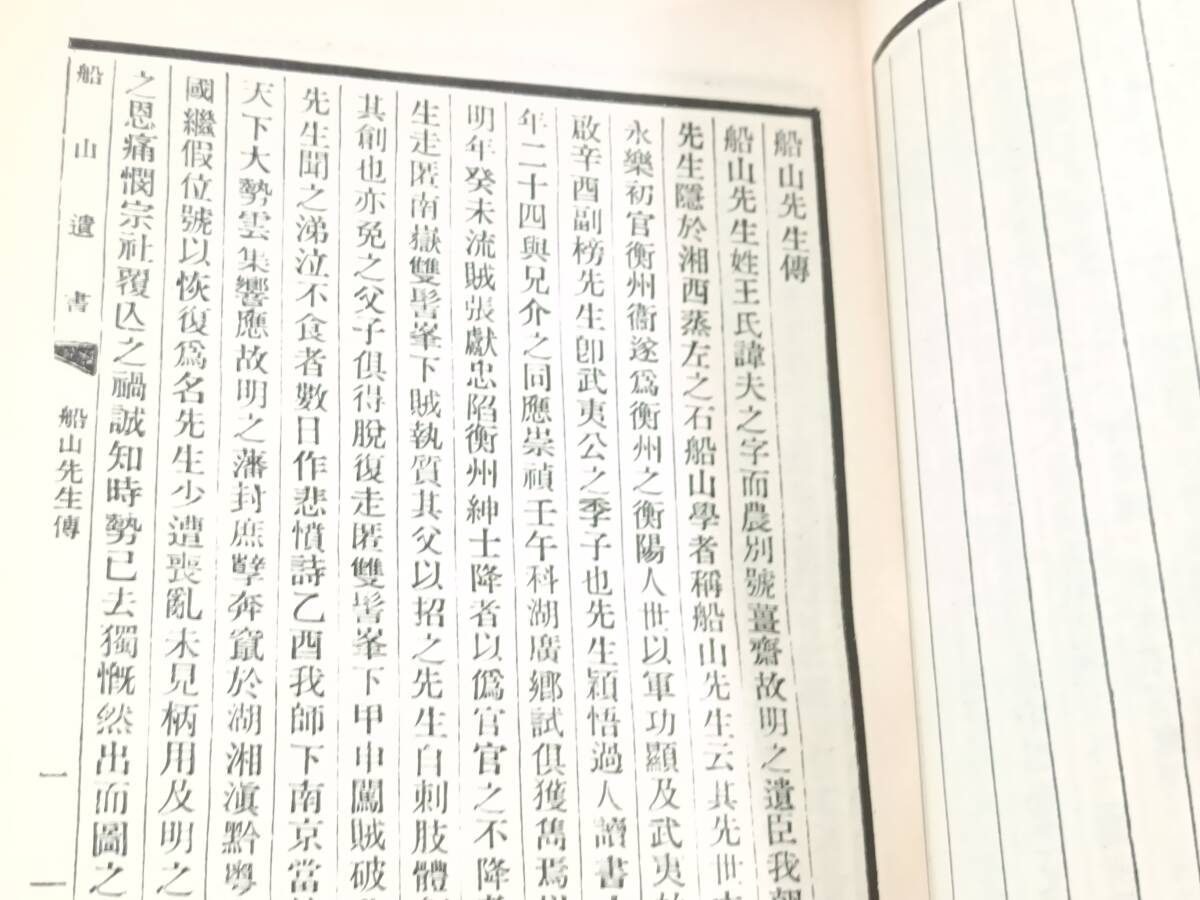 船山先生傳
船山先生姓王氏諱夫之字而農別號薑齋故明之遺臣我朝
先生隱於湘西蒸左之石船山學者稱船山先生云其先世
永樂初官衡州衞遂爲衡州之衡陽人世以軍功顯及武夷
啟辛酉副榜先生卽武夷公之季子也先生穎悟過人讀書
年二十四與兄介之同應崇禎壬午科湖廣鄉試俱獲雋焉
明年癸未流賊張獻忠陷衡州紳士降者以僞官官之不降者
生走匿南嶽雙髻峯下賊執質其父以招之先生自刺肢體
其創也亦免之父子俱得脫復走匿雙髻峯下甲申闖賊破
先生聞之涕泣不食者數日作悲憤詩乙酉我師下南京當
天下大勢雲集響應故明之藩封庶孽奔竄於湖湘滇黔粵
國繼假位號以恢復爲名先生少遭喪亂未見柄用及明之
之恩痛憫宗社覆亾之禍誠知時勢已去獨慨然出而圖之
船山遺書
船山先生傳
一